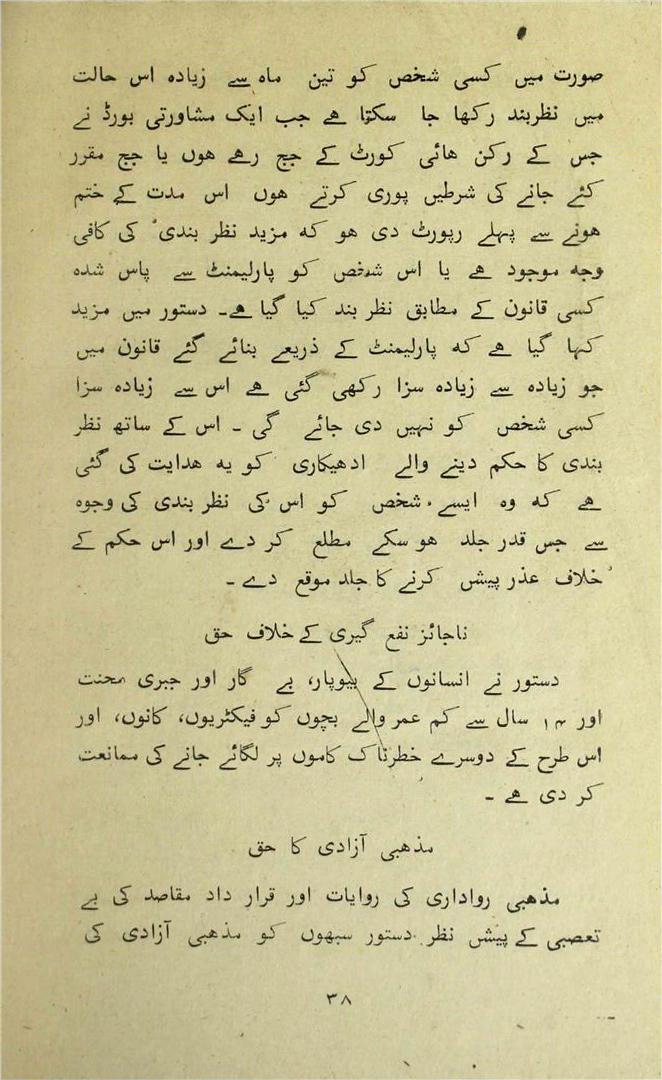 صورت میں کسی شخص کو تین ماہ سے زیادہ اس حالت
میں نظربند رکھا جا سکتا ہے جب ایک مشاورتی بورڈ نے
جس کے رکن ہائی کورٹ کے جج رہے ہوں یا جج مقرر
کئے جانے کی شرطیں پوری کرتے ہوں اس مدت کے ختم
ہونے سے پہلے رپورٹ دی ہو کہ مزید نظر بندی کی کافی
وجہ موجود ہے یا اس شخص کو پارلیمنٹ سے پاس شدہ
کسی قانون کے مطابق نظر بند کیا گیا ہے۔ دستور میں مزید
کہا گیا ہے کہ پارلیمنٹ کے ذریعے بنائے گئے قانون میں
جو زیادہ سے زیادہ سزا رکھی گئی ہے اس سے زیادہ سزا
کسی شخص کو نہیں دی جائے گی ۔ اس کے ساتھ نظر
بندی کا حکم دینے والے ادھیکاری کو یہ ہدایت کی گئی
ہے کہ وہ ایسے شخص کو اس کی نظر بندی کی وجوہ
سے جس قدر جلد ہو سکے مطلع کر دے اور اس حکم کے
خلاف عذر پیش کرنے کا جلد موقع دے ۔
ناجائز نفع گیری کے خلاف حق
دستور نے انسانوں کے بیوپار، بے گار اور جبری محنت
اور ۱۴ سال سے کم عمر والے بچوں کو فیکٹریوں، کانوں، اور
اس طرح کے دوسرے خطرناک کاموں پر لگائے جانے کی ممانعت
کر دی ہے ۔
مذہبی آزادی کا حق
مذہبی رواداری کی روایات اور قرار داد مقاصد کی بے
تعصبی کے پیش نظر دستور سبھوں کو مذہبی آزادی کی
۳۸